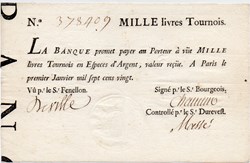 N.º 378409 MILLE livres Tournois.
LA BANQUE promet payer au Porteur à vüe MILLE
livres Tournois en Especes d'Argent, valeur reçüe. A Paris le
premier Janvier mil sept cens vingt.
Vû p.r le S.r Fenellon.
Signé p.r le S.r Bourgeois,
Controllé p.r le S.r Durevest.